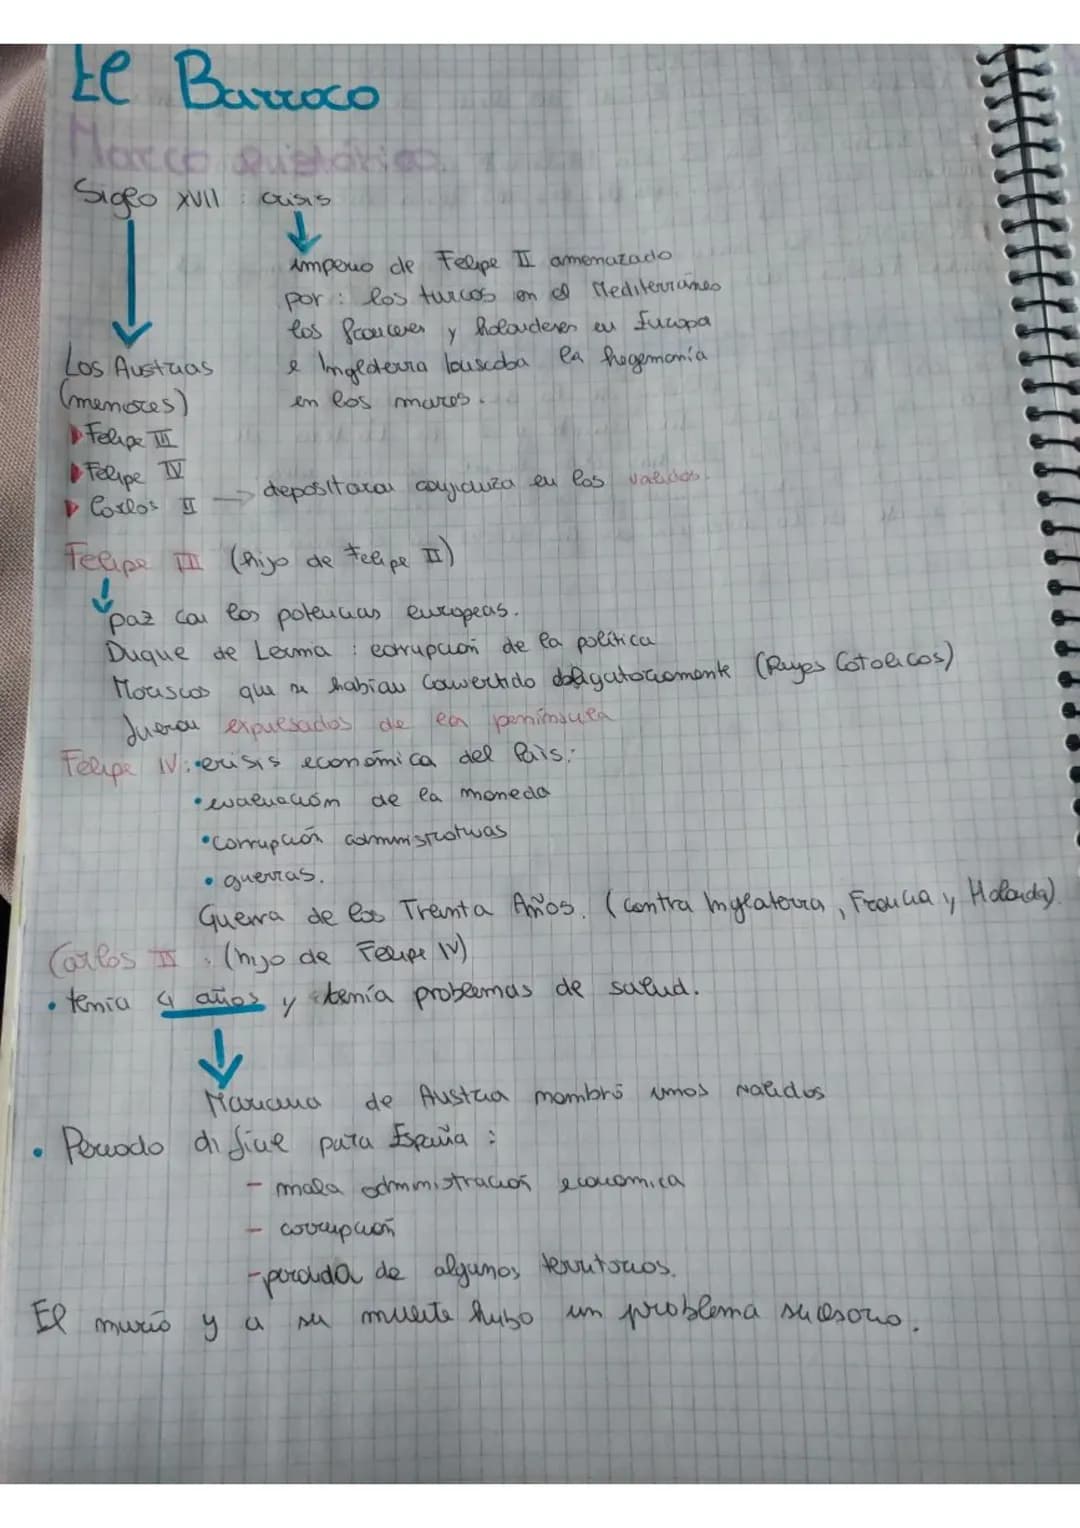 El Barroco
Marco histórico
Siglo XVII : crisis
imperio de Felipe II amenazado
por : los turcos en el Mediterráneo
los franceses y holandeses en Europa
e Inglaterra buscaba la hegemonía
en los mares.
Los Austrias
(menores)
Felipe III
Felipe IV
Carlos II → depositaron confianza en los validos.
Felipe III (hijo de Felipe II)
paz con las potencias europeas.
Duque de Lerma : corrupción de la política
Moriscos que se habían convertido obligatoriamente (Reyes Católicos)
fueron expulsados de la península
Felipe IV: • crisis económica del País:
• evaluación de la moneda
• corrupción administrativas
• guerras.
Guerra de los Treinta Años. (contra Inglaterra, Francia y Holanda)
Carlos II : (hijo de Felipe IV)
• tenía 4 años y tenía problemas de salud.
Mariana de Austria nombró unos validos
• Periodo difícil para España :
- mala administración económica
- corrupción
- perdida de algunos territorios.
El murió y a su muerte hubo un problema sucesorio.